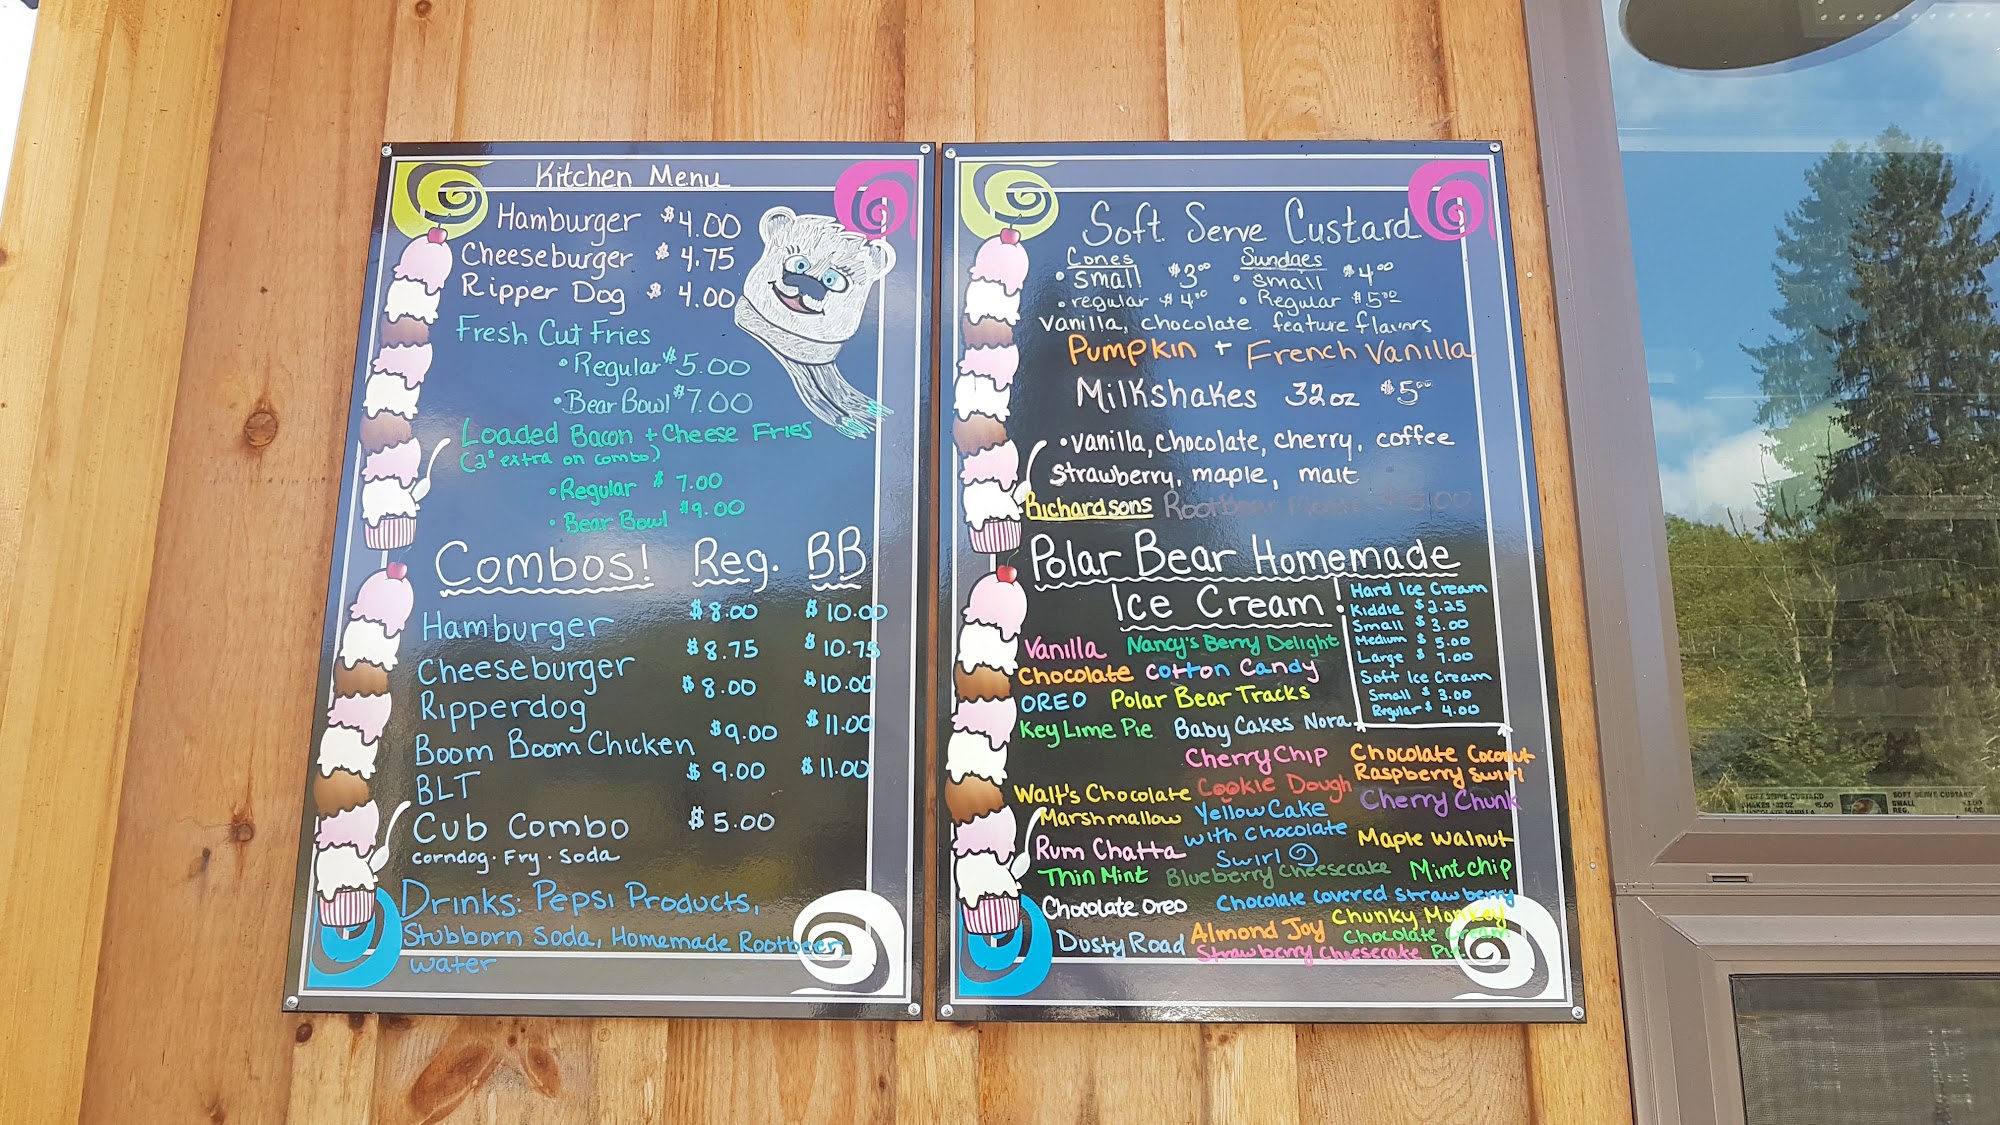 Kitchen Menu
Hamburger $4.00
Cheeseburger $4.75
Ripper Dog $4.00
Fresh Cut Fries
• Regular $5.00
• Bear Bowl $7.00
Loaded Bacon + Cheese Fries
(2⁰⁰ extra on combo)
• Regular $7.00
• Bear Bowl $9.00
Combos! Reg. BB
Hamburger $8.00 $10.00
Cheeseburger $8.75 $10.75
Ripperdog $8.00 $10.00
Boom Boom Chicken $9.00 $11.00
BLT $9.00 $11.00
Cub Combo $5.00
Corndog · Fry · Soda
Drinks: Pepsi Products,
Stubborn Soda, Homemade Rootbeer,
Water
Soft Serve Custard
Cones Sundaes
• Small $3⁰⁰ • Small $4⁰⁰
• regular $4⁰⁰ • Regular $5⁰⁰
Vanilla, chocolate feature flavors
Pumpkin + French Vanilla
Milkshakes 32oz $5⁰⁰
• vanilla, chocolate, cherry, coffee
Strawberry, maple, malt
Richardsons Rootbeer
Polar Bear Homemade
Ice Cream!
Hard Ice Cream
Kiddie $2.25
Small $3.00
Medium $5.00
Large $7.00
Soft Ice Cream
Small $3.00
Regular $4.00
Vanilla Nancy's Berry Delight
Chocolate Cotton Candy
OREO Polar Bear Tracks
Key Lime Pie Baby Cakes Nora
Cherry Chip Chocolate Coconut
Raspberry Swirl
Walt's Chocolate Cookie Dough Cherry Chunk
Marshmallow Yellow Cake
with Chocolate Maple Walnut
Rum Chatta Swirl
Thin Mint Blueberry Cheesecake Mint chip
Chocolate Oreo Chocolate Covered Strawberry
Almond Joy Chunky Monkey
Dusty Road Chocolate Cream
Strawberry Cheesecake Pie
SOFT SERVE CUSTARD
SMALL
REG.